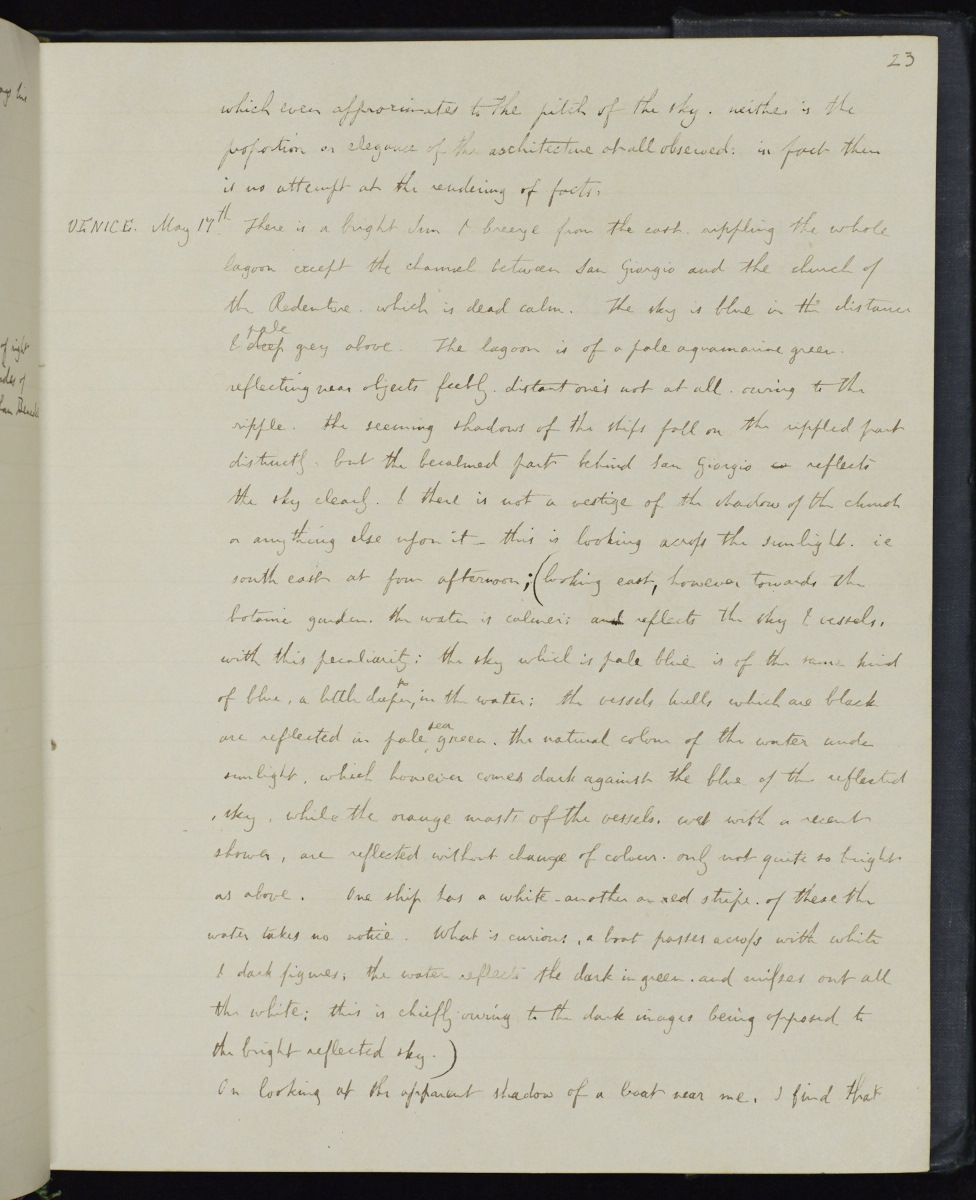 23
which even approximates to the pitch of the sky. neither is the
proportion or elegance of the architecture at all observed: in fact there
is no attempt at the rendering of facts.
VENICE. May 17th There is a bright Sun & breeze from the east. rippling the whole
lagoon except the channel between San Giorgio and the church of
the Redentore. which is dead calm. The sky is blue in the distance
& deep pale grey above. The lagoon is of a pale aquamarine green.
reflecting near objects feebly. distant one's not at all. owing to the
ripple. the seeming shadows of the ships fall on the rippled part
distinctly. but the becalmed part behind San Giorgio reflects
the sky clearly. & there is not a vestige of the shadow of the church
or anything else upon it – this is looking acrofs the sunlight. ie
south east at four afternoon; (looking east, however towards the
botanic garden. the water is calmer; and reflects the sky & vessels.
with this peculiarity: the sky which is pale blue is of the same kind
of blue, a little deeper, in the water; the vessels hulls which are black
are reflected in pale sea green. the natural colour of the water under
sunlight, which however comes dark against the blue of the reflected
sky, while the orange masts of the vessels. wet with a recent
shower, are reflected without change of colour. only not quite so bright
as above. One ship has a white – another a red stripe. of these the
water takes no notice. What is curious, a boat passes acrofs with white
& dark figures; the water reflects the dark in green. and mifses out all
the white; this is chiefly owing to the dark images being opposed to
the bright reflected sky.)
On looking at the apparent shadow of a boat near me. I find that
of right